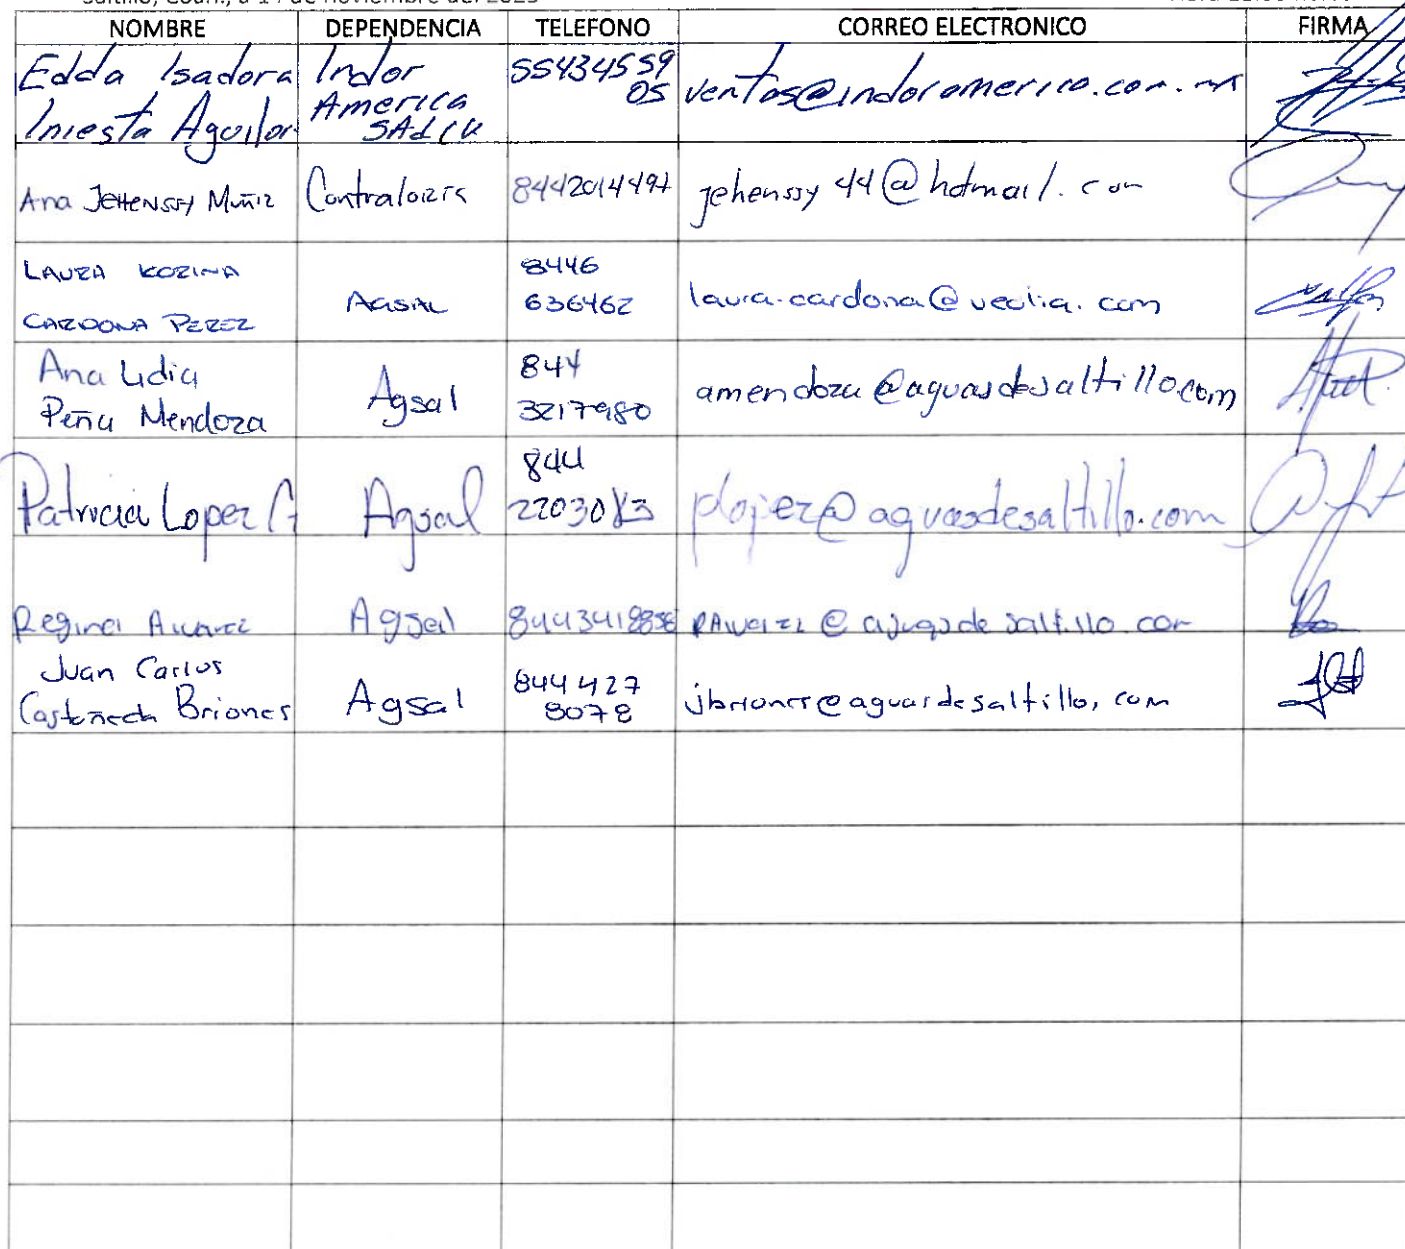 NOMBRE DEPENDENCIA TELEFONO CORREO ELECTRONICO FIRMA
Edda Isadora Indor 55434559
Iniesta Aguilar America 05 ventas@indoramerica.com.mx
SAdCV
Ana JEHENSSY Muñiz Contraloría 8442014497 jehenssy44@hotmail.com
LAURA KORINA 8446
CARDONA PEREZ AGSAL 636462 laura.cardona@veolia.com
Ana Lidia 844
Peña Mendoza Agsal 3217980 amendoza@aguasdesaltillo.com
844
Patricia Lopez G Agsal plopez@aguasdesaltillo.com
Regina Alvarez Agsal @aguasdesaltillo.com
Juan Carlos 844 427
Castañeda Briones Agsal 8078 jbriones@aguasdesaltillo.com